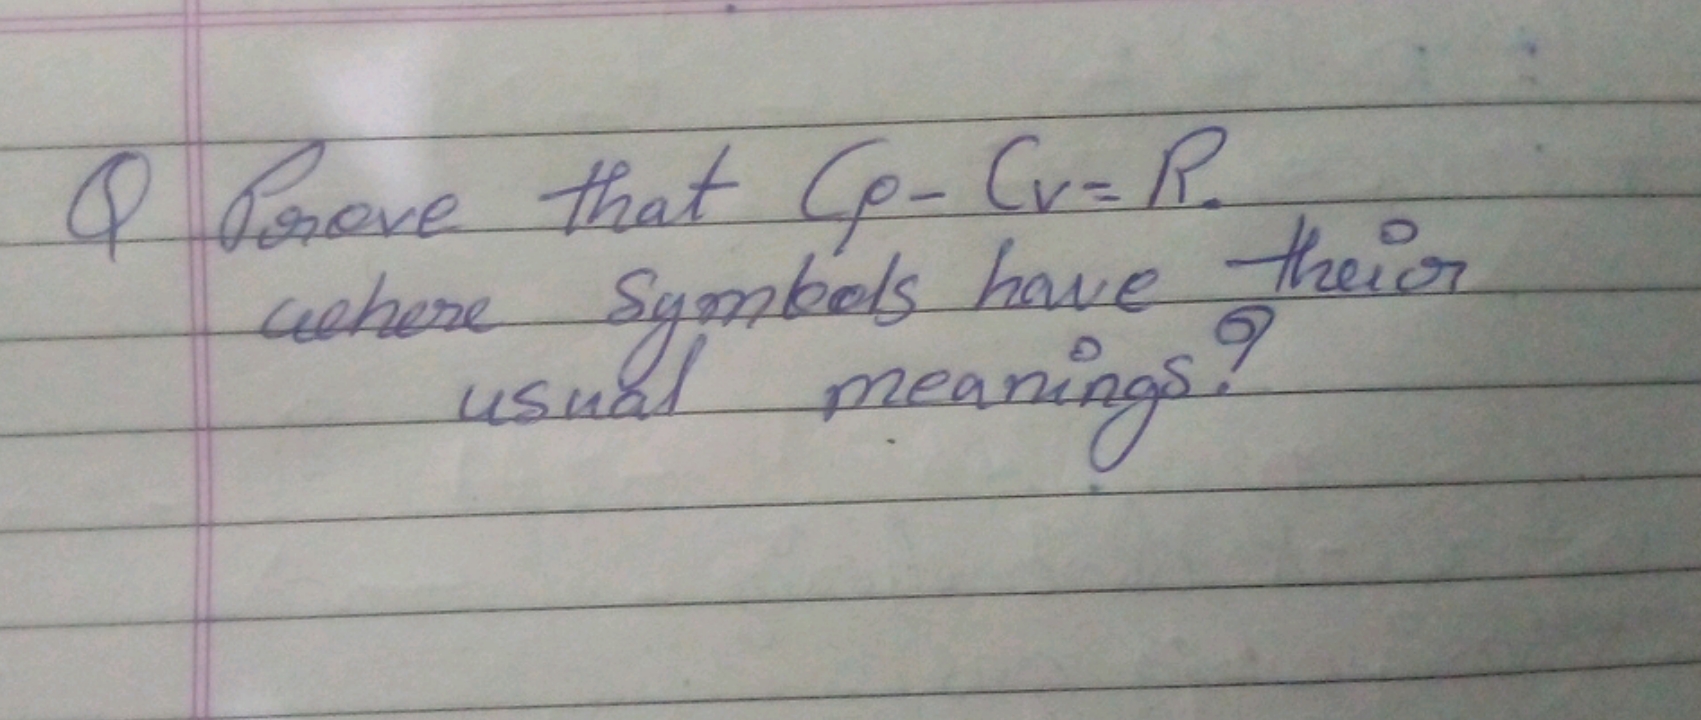 Q Prove that Cp - Cv = R.
where symbols have their
usual meanings?